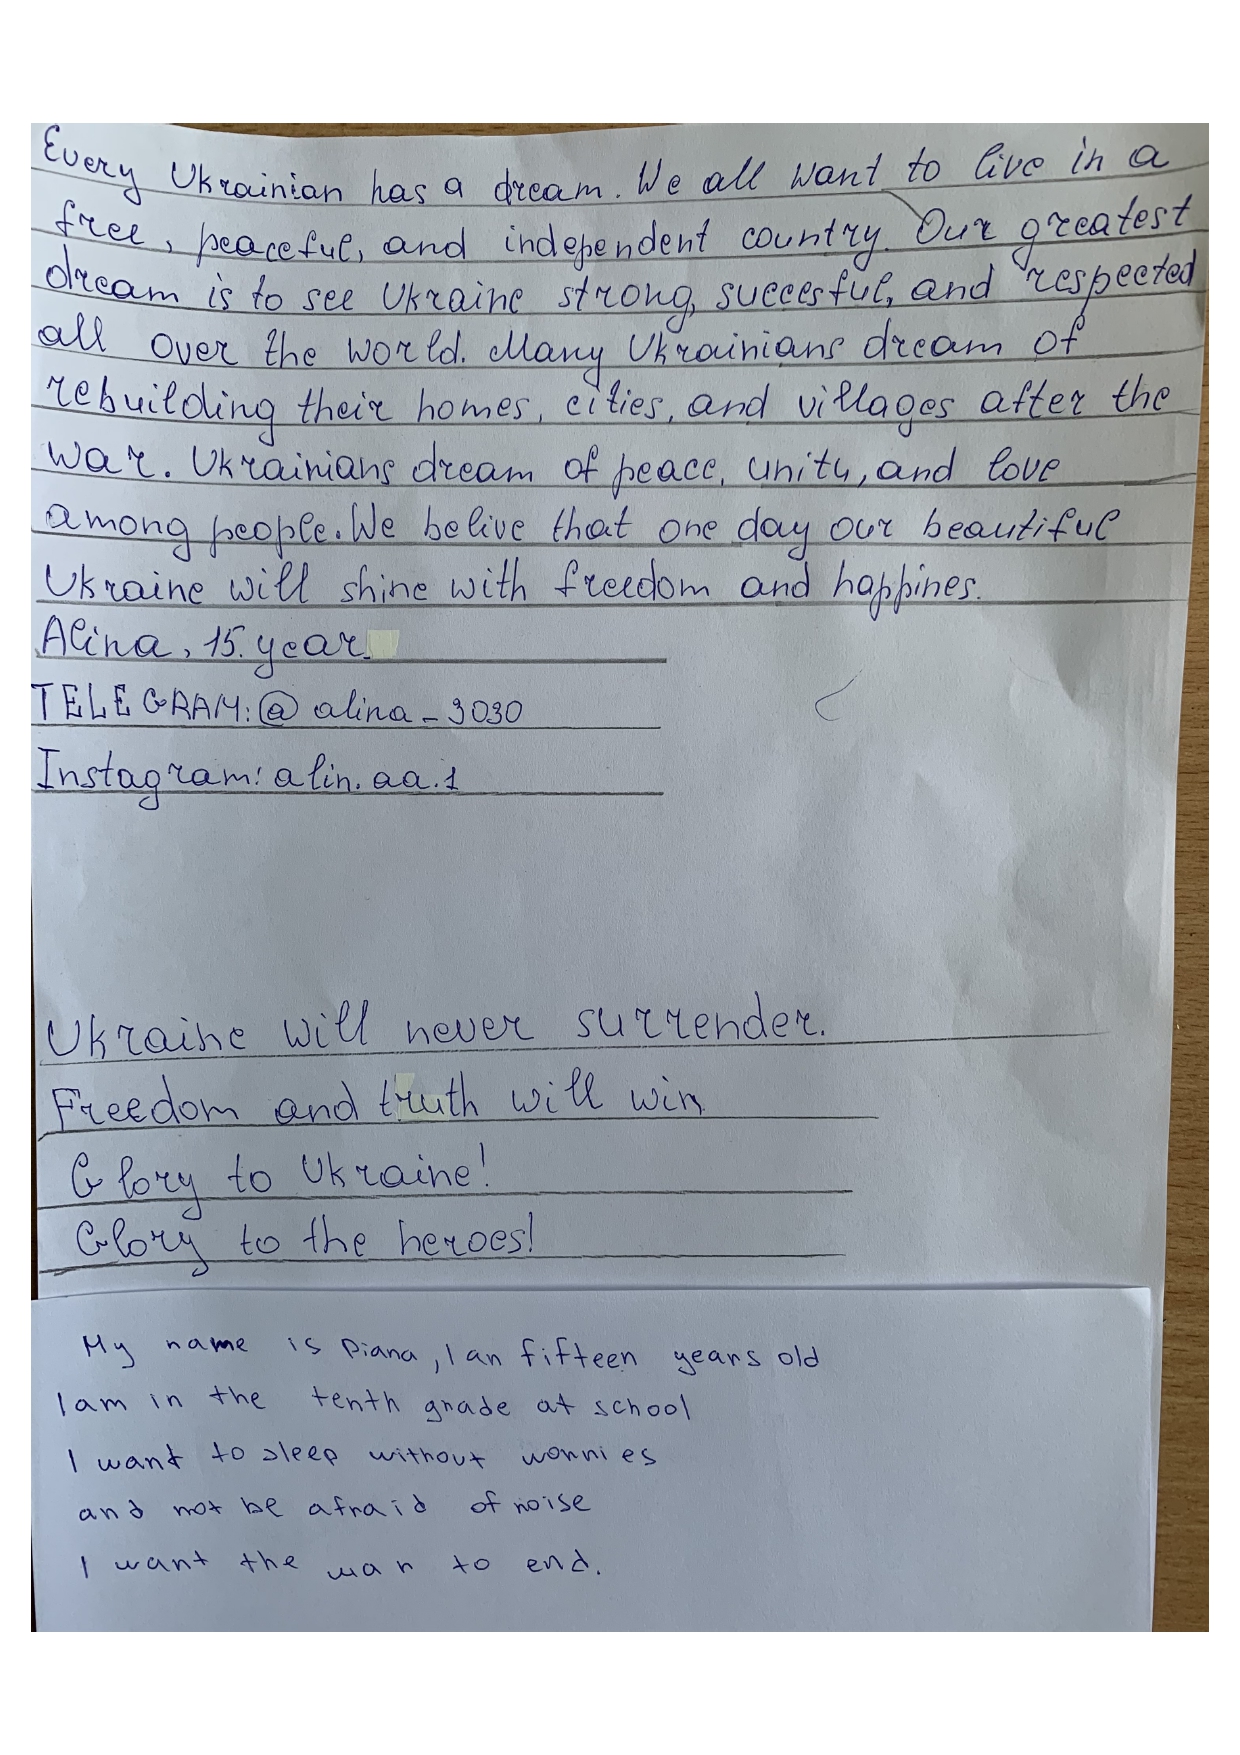 Every Ukrainian has a dream. We all want to live in a
free, peaceful, and independent country. Our greatest
dream is to see Ukraine strong, succesful, and respected
all over the world. Many Ukrainians dream of
rebuilding their homes, cities, and villages after the
war. Ukrainians dream of peace, unity, and love
among people. We belive that one day our beautiful
Ukraine will shine with freedom and happines.
Alina, 15. year.
TELEGRAM: @alina_3030
Instagram: alin.aa.1
Ukraine will never surrender.
Freedom and truth will win.
Glory to Ukraine!
Glory to the heroes!
My name is Diana, I an fifteen years old
I am in the tenth grade at school
I want to sleep without worries
and not be afraid of noise
I want the war to end.